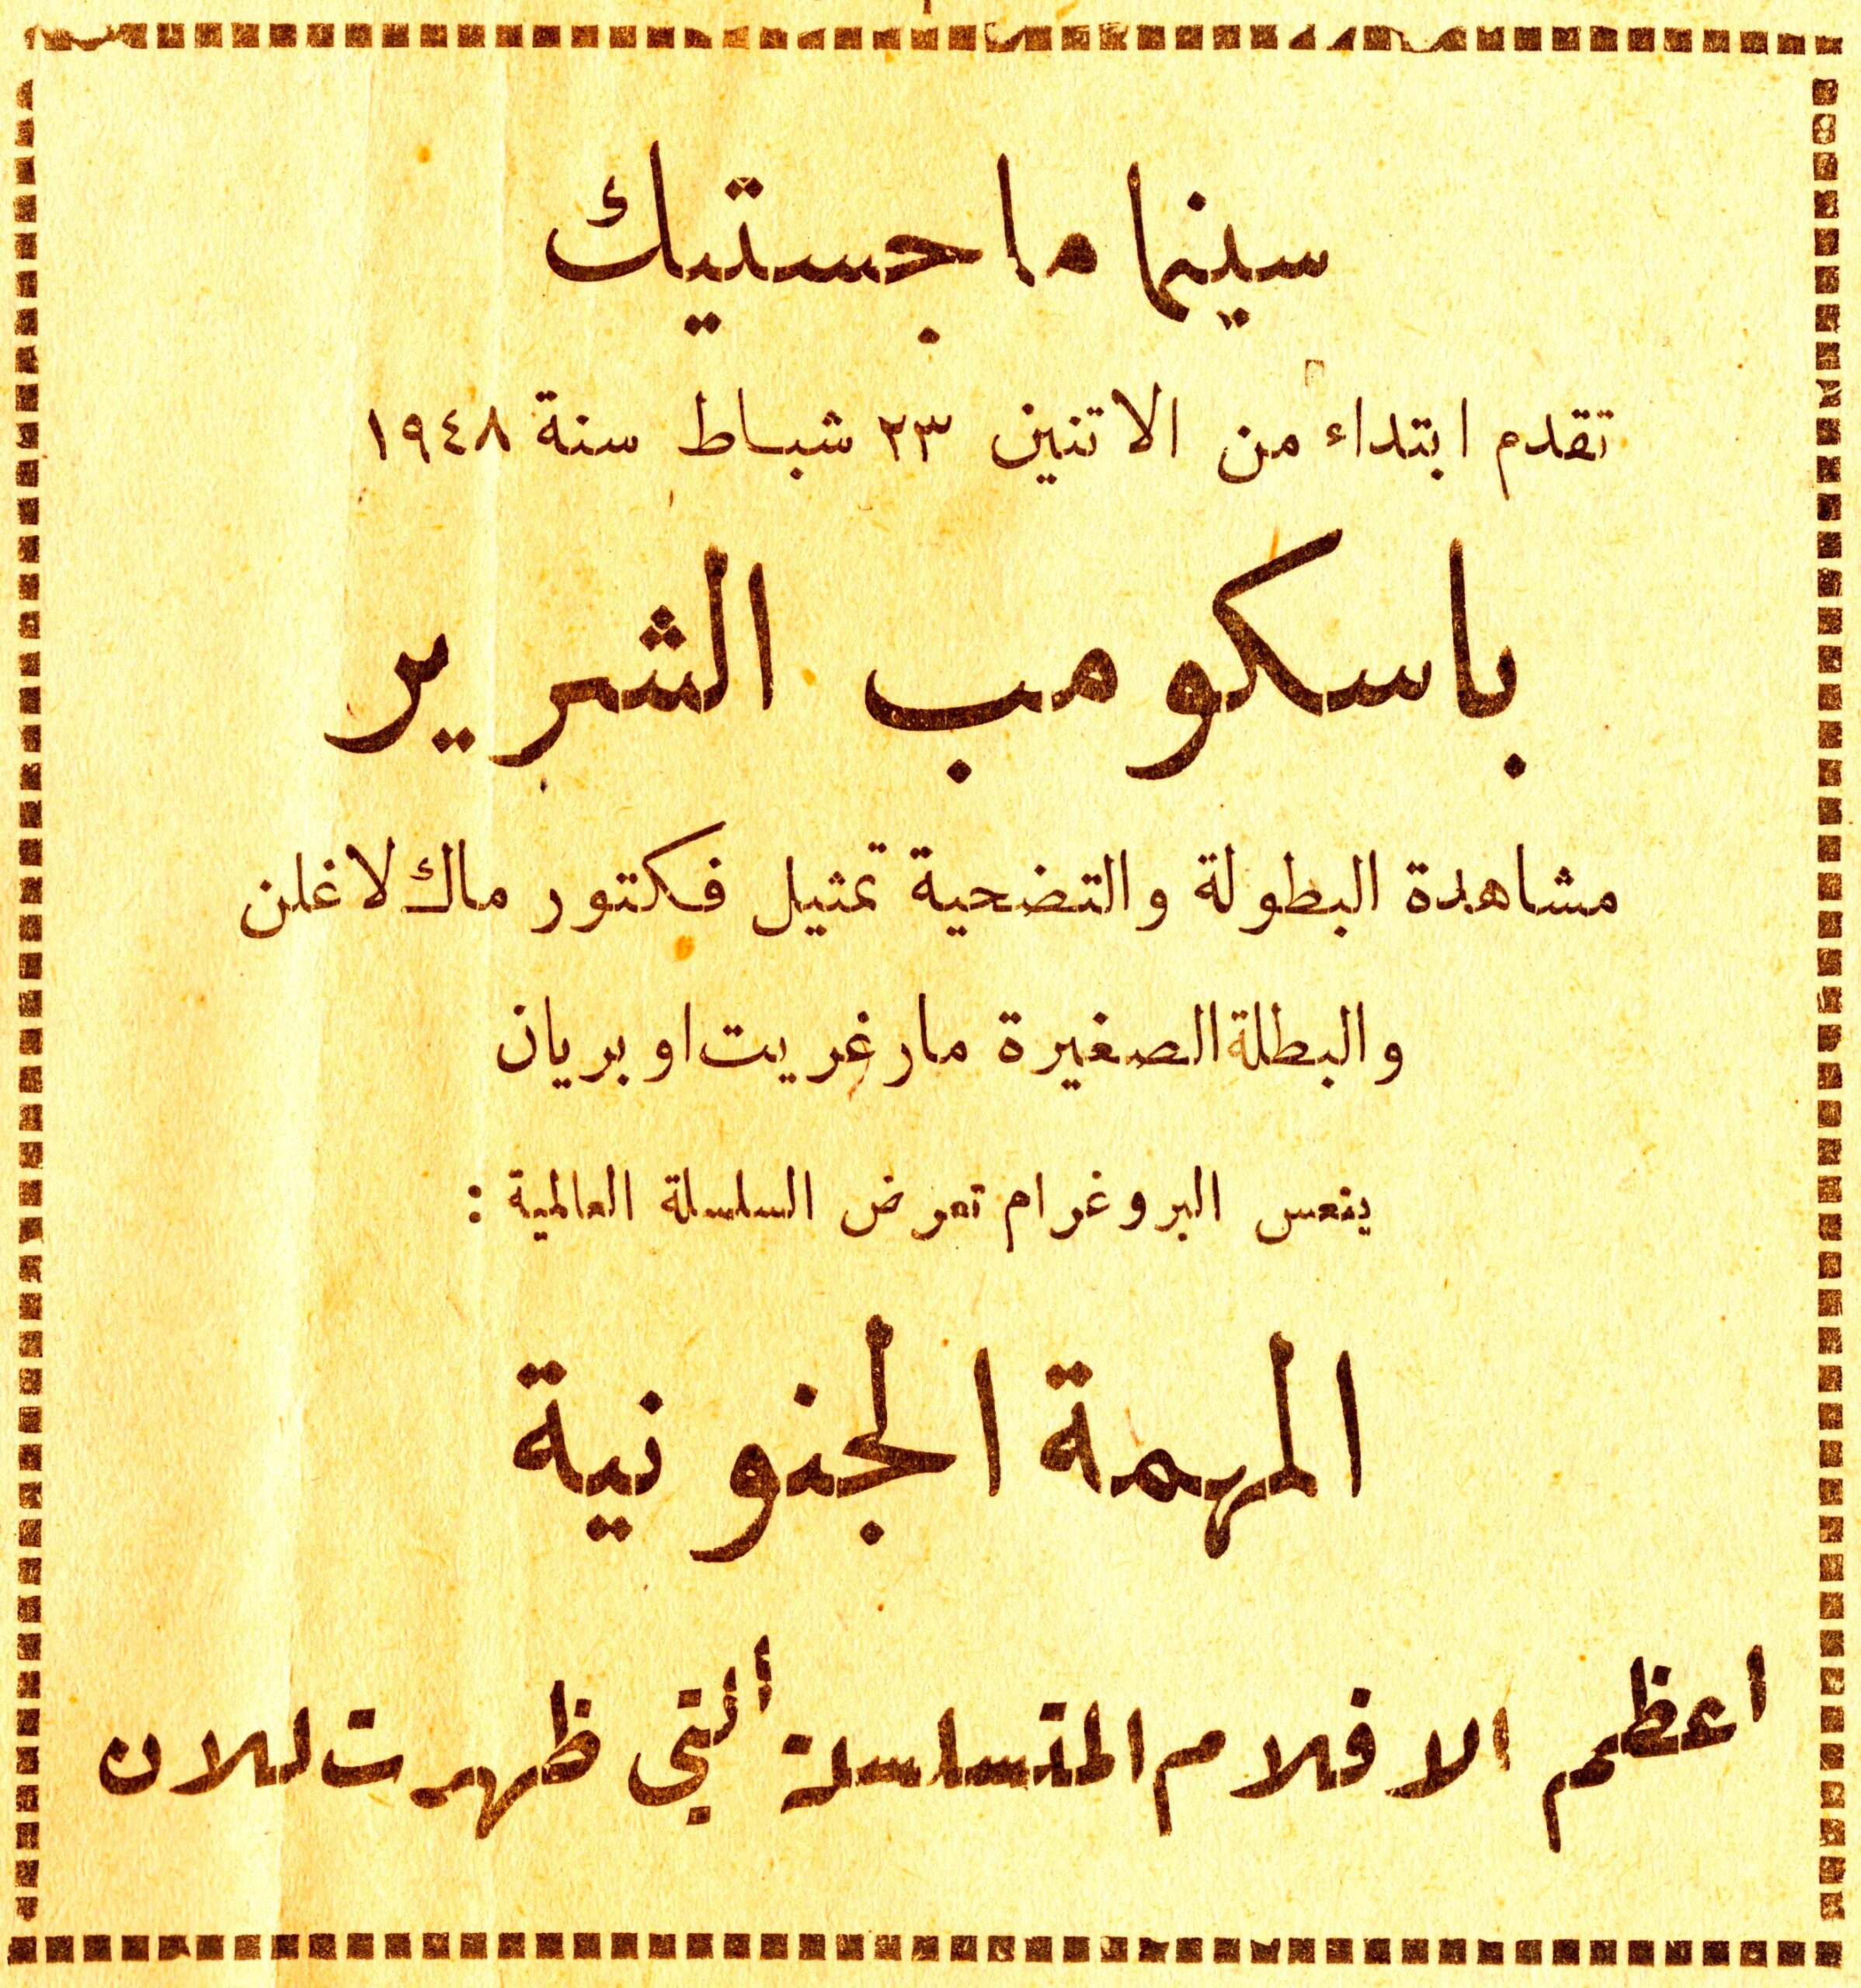 سينما ماجستيك
تقدم ابتداء من الاتنين ٢٣ شباط سنة ١٩٤٨
باسكومب الشرير
مشاهدة البطولة والتضحية تمثيل فكتور ماك لاغلن
والبطلة الصغيرة مارغريت اوبريان
ينعس البروغرام تعرض السلسلة العالمية :
المهمة الجنونية
اعظم الافلام المتسلسلة التي ظهرت للان